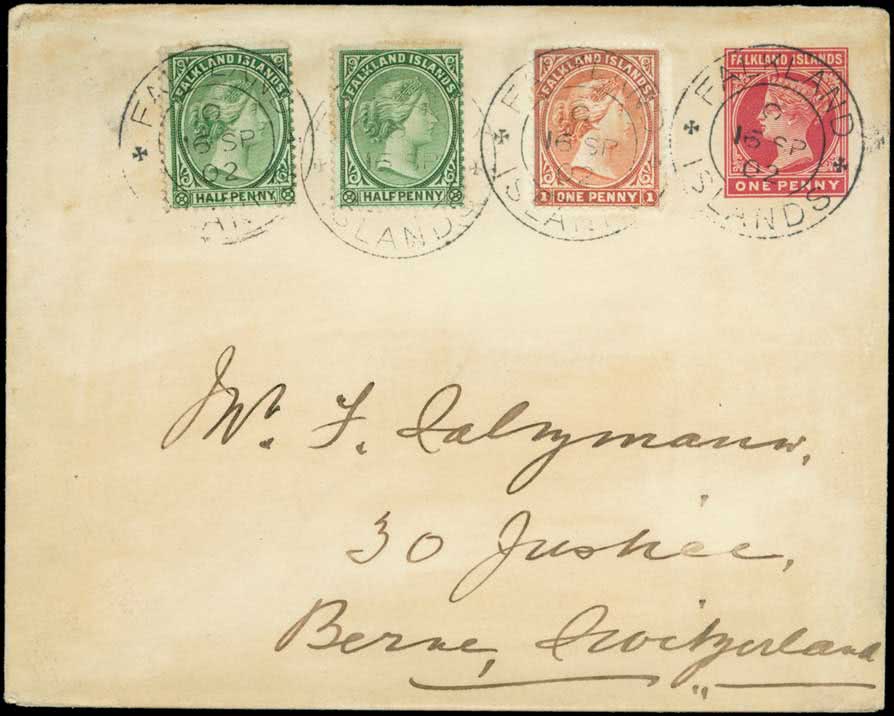 FALKLAND ISLANDS
HALFPENNY
FALKLAND ISLANDS
HALFPENNY
FALKLAND ISLANDS
1 ONE PENNY 1
FALKLAND ISLANDS
ONE PENNY
FALKLAND ISLANDS
C
16 SP
02
ISLANDS
FALKLAND ISLANDS
C
16 SP
02
FALKLAND ISLANDS
C
16 SP
02
Mr. F. Salzymann,
30 Justice,
Berne, Switzerland